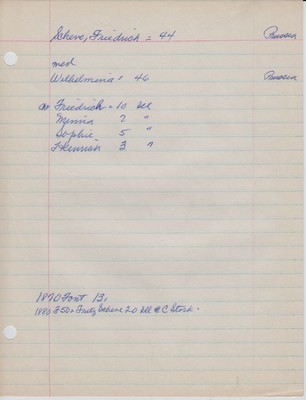 Scheve, Friedrich = 44 Prussia
med
Wilhelmina: 46 Prussia
Friedrich = 10 Ill
Minnia 7 "
Sophie 5 "
Heinrich 3 "
1870 Font 13,
1880 F50 Fritz Scheve 20 Ill C Stork.